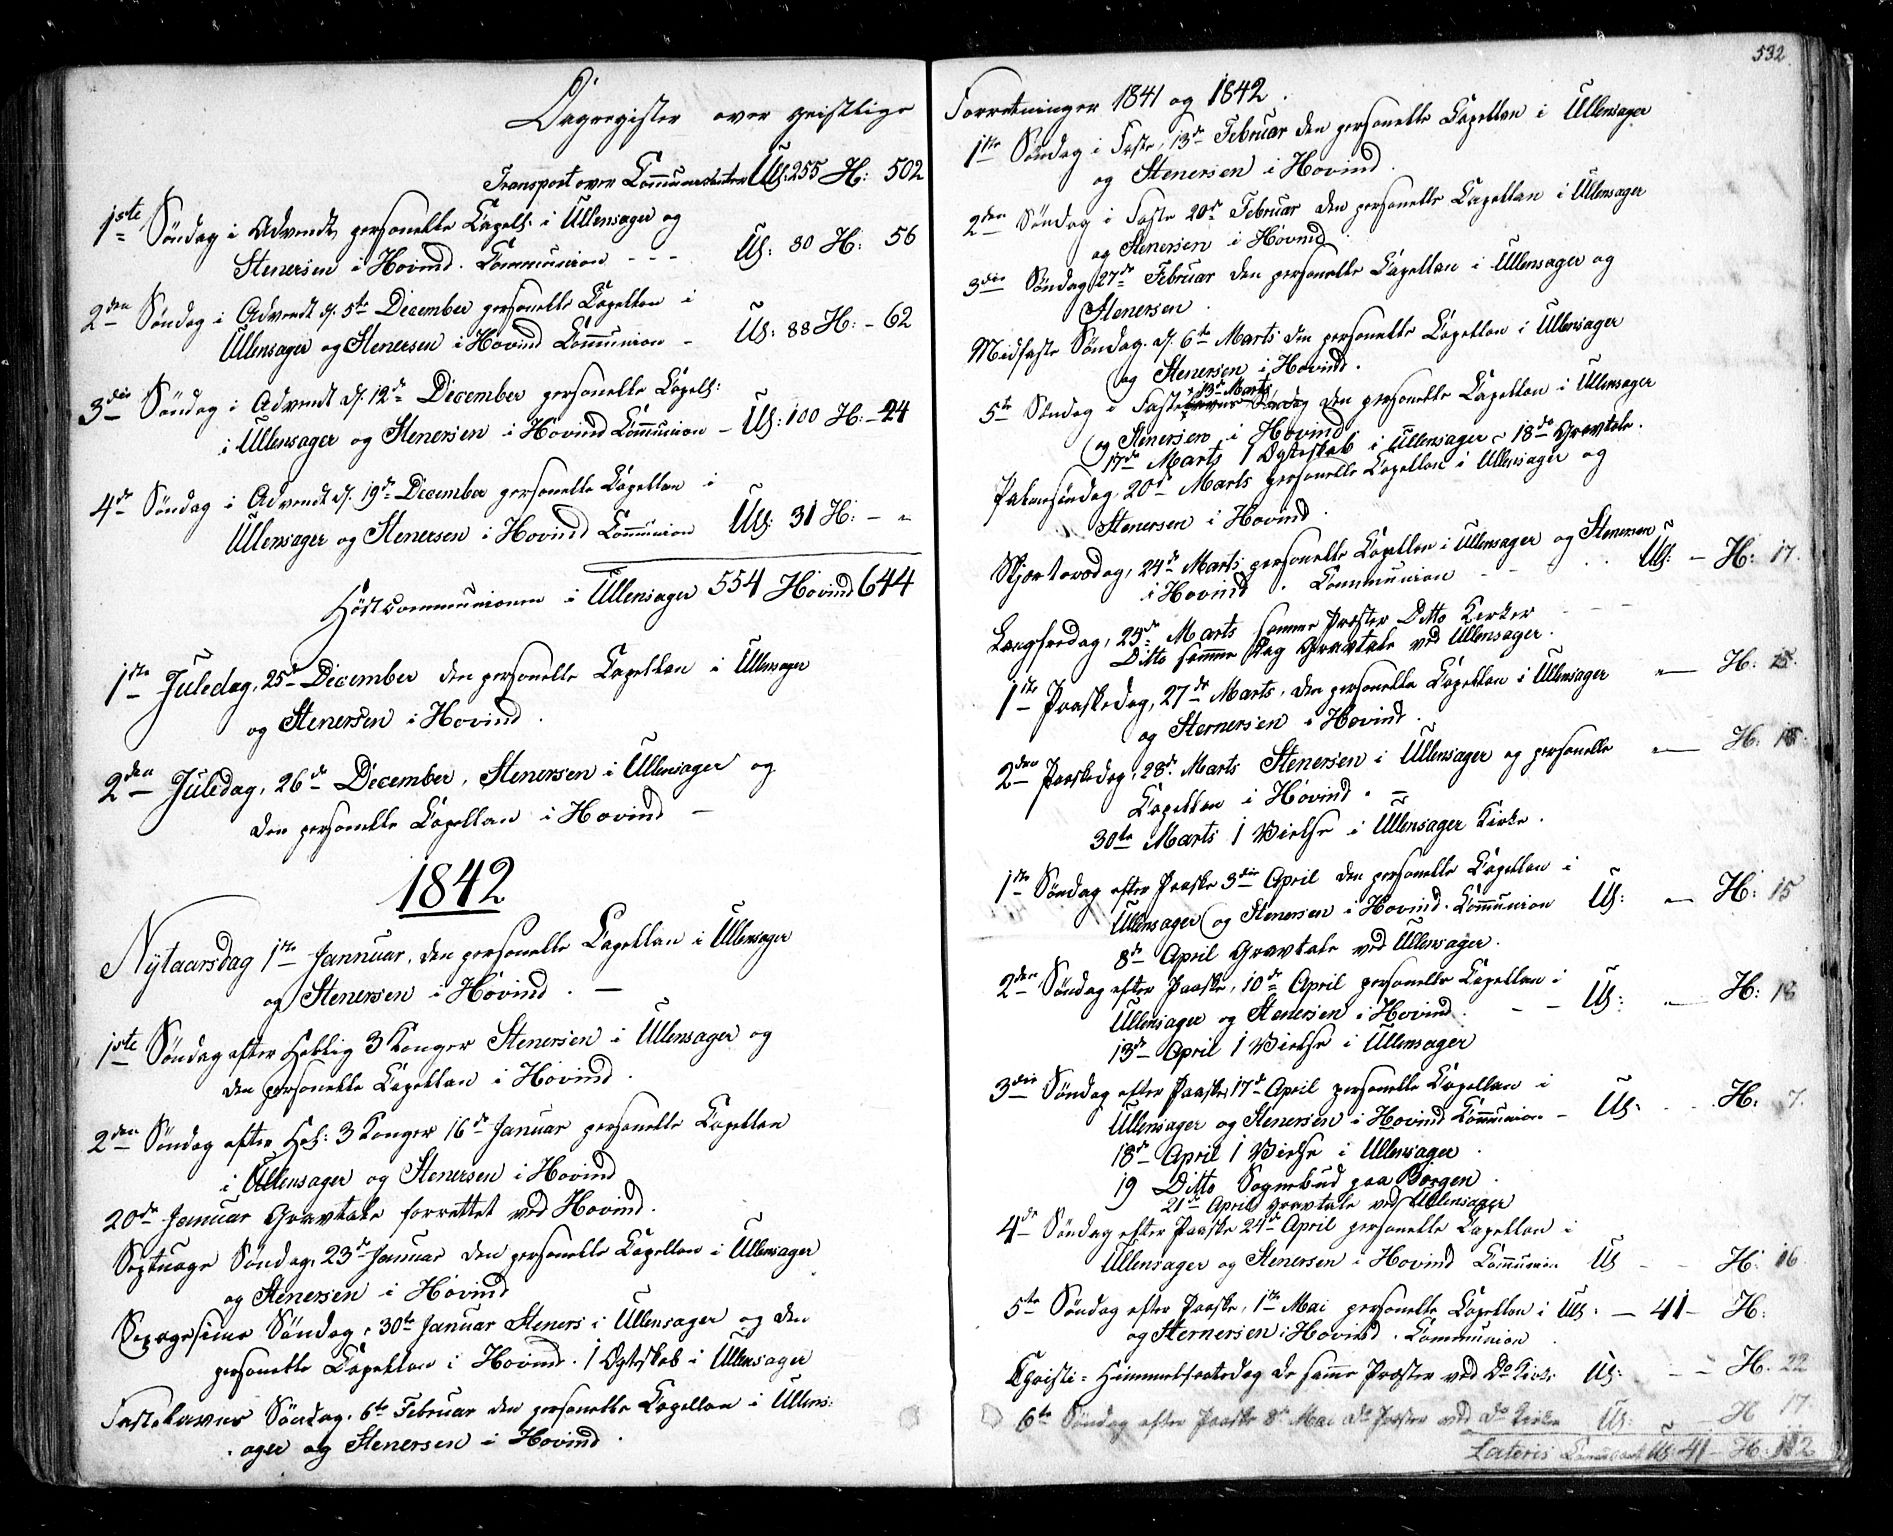 Dagregister over geistlige
Transport over Communicanter Ull: 255 H: 502
1ste Søndag i Advendt, personelle Capell: i Ullensager og
Stenersen i Hovind. Communion - - - Ull: 80 H: 56
2den Søndag i Advendt d. 5te December personelle Capellan i
Ullensager og Stenersen i Hovind Communion - Ull: 88 H: - 62
3die Søndag i Advendt d. 12te December personelle Capell:
i Ullensager og Stenersen i Hovind Communion - Ull: 100 H: - 24
4de Søndag i Advendt d. 19de December personelle Capellan i
Ullensager og Stenersen i Hovind Communion Ull: 31 H: - "
Höstcommunionen i Ullensager 554 Hovind 644
1ste Juledag, 25de December den personelle Capellan i Ullensager
og Stenersen i Hovind.
2den Juledag, 26de December, Stenersen i Ullensager og
den personelle Capellan i Hovind -
1842
Nytaarsdag 1ste Jannuar, den personelle Capellan i Ullensager
og Stenersen i Hovind. -
1ste Søndag efter Hellig 3 Konger Stenersen i Ullensager og
den personelle Capellan i Hovind.
2den Søndag efter Hel: 3 Konger 16de Januar personelle Capellan
i Ullensager og Stenersen i Hovind
20de Januar Gravtale forrettet ved Hovind.
Septuage Søndag, 23de Januar den personelle Capellan i Ullensager
og Stenersen i Hovind
Sexagesima Søndag, 30te Januar Steners i Ullensager og den
personelle Capellan i Hovind. 1 Egtskab i Ullensager
Fastelavns Søndag, 6te Februar den personelle Capellan i Ullens:
ager og Stenersen i Hovind.
532
Forretninger 1841 og 1842.
1ste Søndag i Faste, 13de Februar den personelle Capellan i Ullensager
og Stenersen i Hovind.
2den Søndag i Faste 20de Februar den personelle Capellan i Ullensager
og Stenersen i Hovind
3die Søndag 27de Februar den personelle Capellan i Ullensager og
Stenersen.
Midfaste Søndag d. 6te Marts den personelle Capellan i Ullensager
og Stenersen i Hovind.
13de Marts
5te Søndag i Faste den personelle Capellan i Ullensager
og Stenersen i Hovind
17de Marts 1 Egteskab i Ullensager - 18de Gravtale.
Palmesøndag, 20de Marts personelle Capellan i Ullensager og
Stenersen i Hovind.
Skjærtorsdag, 24de Marts personelle Capellan i Ullensager og Stenersen
i Hovind. Communion - - Ull: - H: 17.
Langfredag, 25de Marts samme Præster Ditto Kirker - - -
Ditto samme Dag Gravtale ved Ullensager.
1ste Paaskedag, 27de Marts, den personelle Capellan i Ullensager " — H:
og Sternersen i Hovind.
2den Paaskedag, 28de Marts Stenersen i Ullensager og personelle " — H:
Capellan i Hovind. -
30te Marts 1 Vielse i Ullensager Kirke.
1ste Søndag efter Paaske 3die April den personelle Capellan i
Ullensager og Stenersen i Hovind. Communion Ull: " — H: 15
8de April Gravtale ved Ullensager.
2den Søndag efter Paaske, 10de April personelle Capellan i
Ullensager og Stenersen i Hovind. - - Ull: " — H: 18
13de April 1 Vielse i Ullensager
3die Søndag efter Paaske, 17de April personelle Capellan i
Ullensager og Stenersen i Hovind Communion - Ull: - - H: 7.
18de April 1 Vielse i Ullensager.
19 Ditto Sognebud paa Borgen.
21de April Gravtale ved Ullensager
4de Søndag efter Paaske 24de April personelle Capellan i
Ullensager og Stenersen i Hovind Communion Ull - - H: 16.
5te Søndag efter Paaske, 1ste Mai personelle Capellan i Ull: - 41 - H:
og Sternersen i Hovind. Communion.
Christi = Himmelfartsdag de samme Præster ved Do Kirke Ull: - - H. 22
6te Søndag efter Paaske 8de Mai do Præster ved do Kirker Ull: - H 17.
Lateris Ull: 41 - H: 112